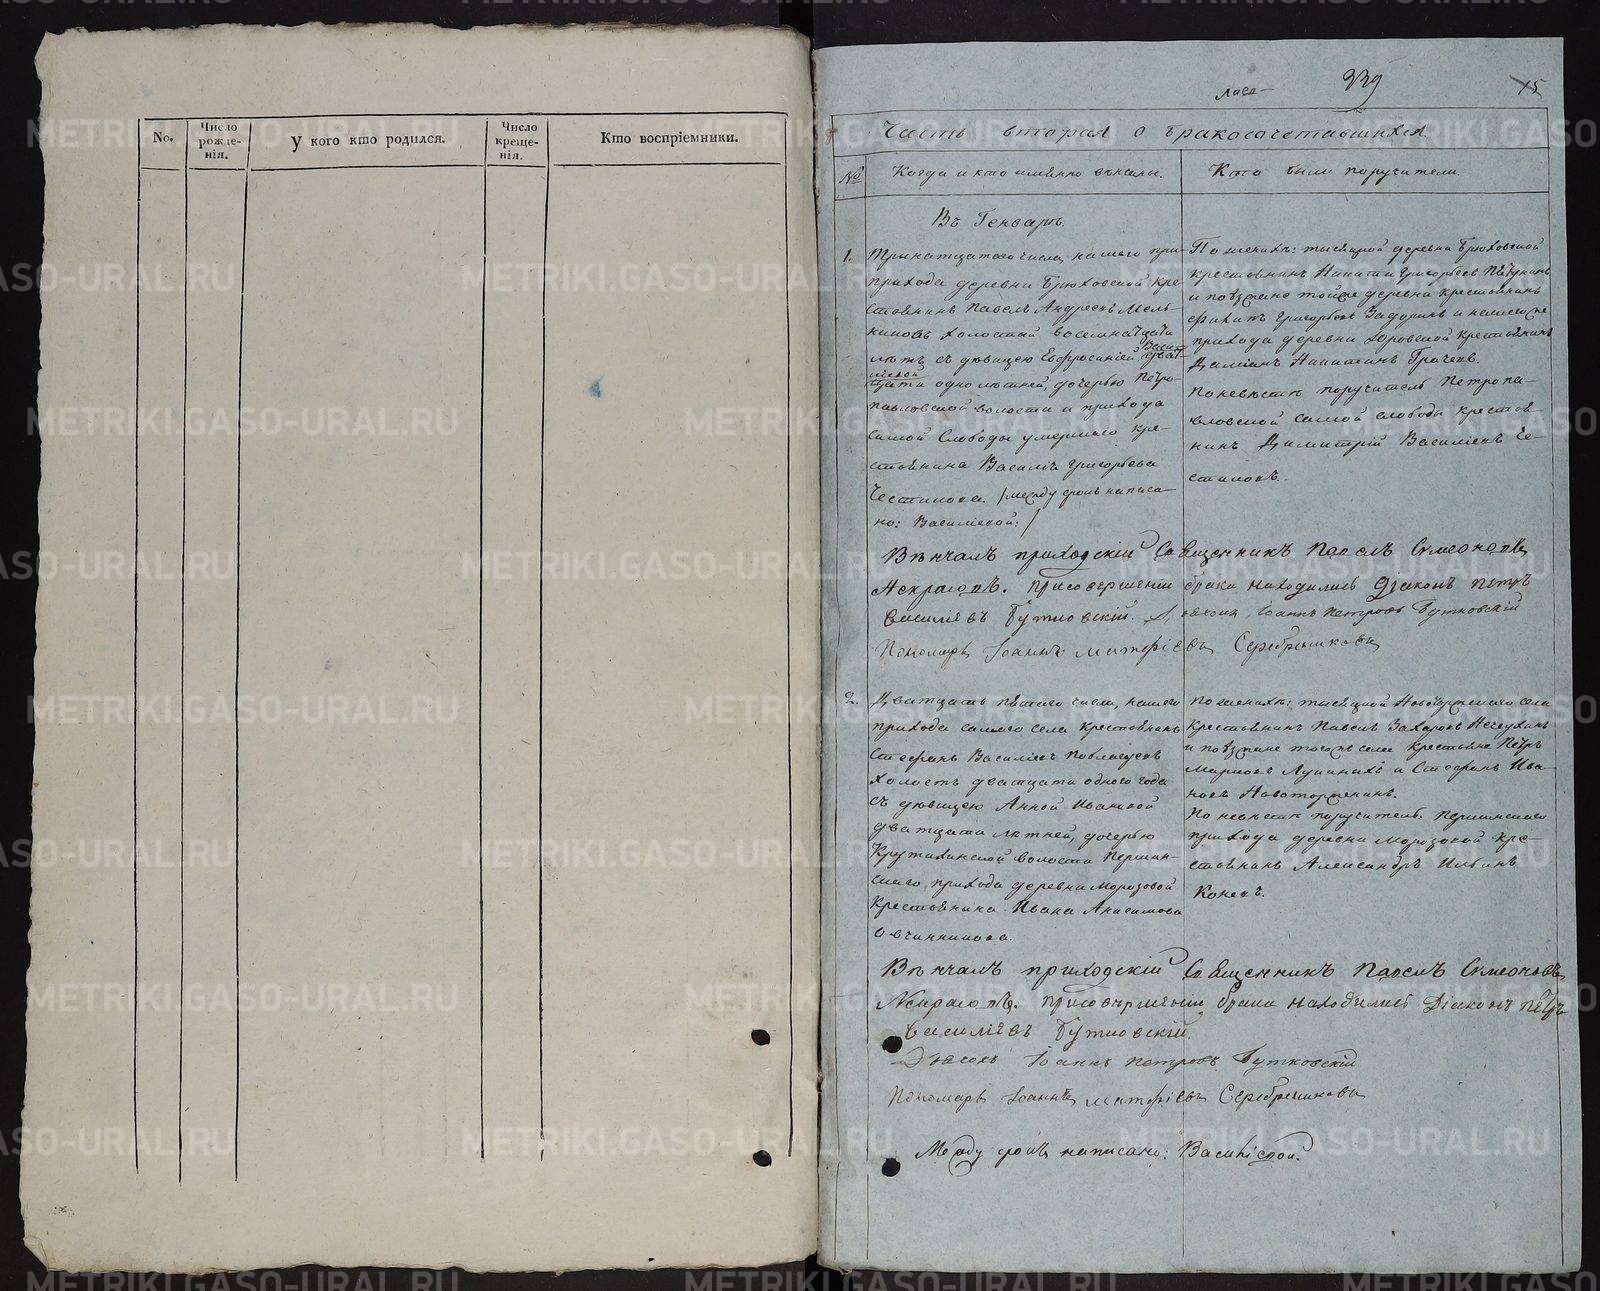 No.
Число рожде-нія.
У кого кто родился.
Число креще-нія.
Кто воспріемники.
339
15
Часть вторая о бракосочетавшихся
№
Когда и кто именно венчаны.
Кто были поручители.
Въ Генварѣ
1.
Тринатцатаго числа, нашего при-
прихода деревни Брюховской кре-
стьянинъ Павелъ Андреевъ Мель
никовъ холостый восемнатцати
лѣтъ съ дѣвицею Евфросиніей
Василіевой
тцати однолѣтней, дочерью Петро-
павловской волости и прихода
самой Слободы умершаго кре-
стьянина Василія Григорьева
Честикова. /между строкъ написа-
но: Василіевой:/
По женихѣ: тысяцкой деревни Брюховской
крестьянинъ Никита Григорьевъ
и поѣзжане тойже деревни крестьянинъ
Григорьевъ Задоринъ и нашего же
прихода деревни крестьянинъ
Даміанъ Никитинъ Грачевъ.
По невѣстѣ поручитель Петропа-
вловской самой слободы крестья-
нинъ Димитрій Василіевъ Че-
стиковъ.
Вѣнчалъ приходскій Священникъ Павелъ Симеоновъ
Некрасовъ. При совершеніи брака находились Діаконъ Петръ
Василіевъ Бутковскій. Дьячекъ Іоаннъ Петровъ Бутковскій
Пономарь Іоаннъ Матѳіевъ Серебрениковъ
2.
Дватцать пятаго числа, нашего
прихода самаго села крестьянинъ
Стефанъ Василіевъ
холостъ дватцати одного года
съ дѣвицею Анной Ивановой
дватцати лѣтней, дочерью
Крутихинской волости Першин-
скаго прихода деревни Морозовой
Крестьянина Ивана Анисимова
Овчинникова.
По женихѣ: тысяцкой села
крестьянинъ Павелъ Захаровъ
и поѣзжане тогожъ села крестьяне Петръ
Марковъ и Стефанъ Ива-
новъ Новоторженинъ.
По невѣстѣ поручитель. Першинскаго
прихода деревни Морозовой кре-
стьянинъ Александръ Ильинъ
Коневъ.
Вѣнчалъ приходскій Священникъ Павелъ Симеоновъ
Некрасовъ. При совершеніи брака находились Діаконъ Петръ
Василіевъ Бутковскій.
Дьячекъ Іоаннъ Петровъ Бутковскій
Пономарь Іоаннъ Матѳіевъ Серебрениковъ
Между строкъ написано: Василіевой.
METRIKI.GASO-URAL.RU